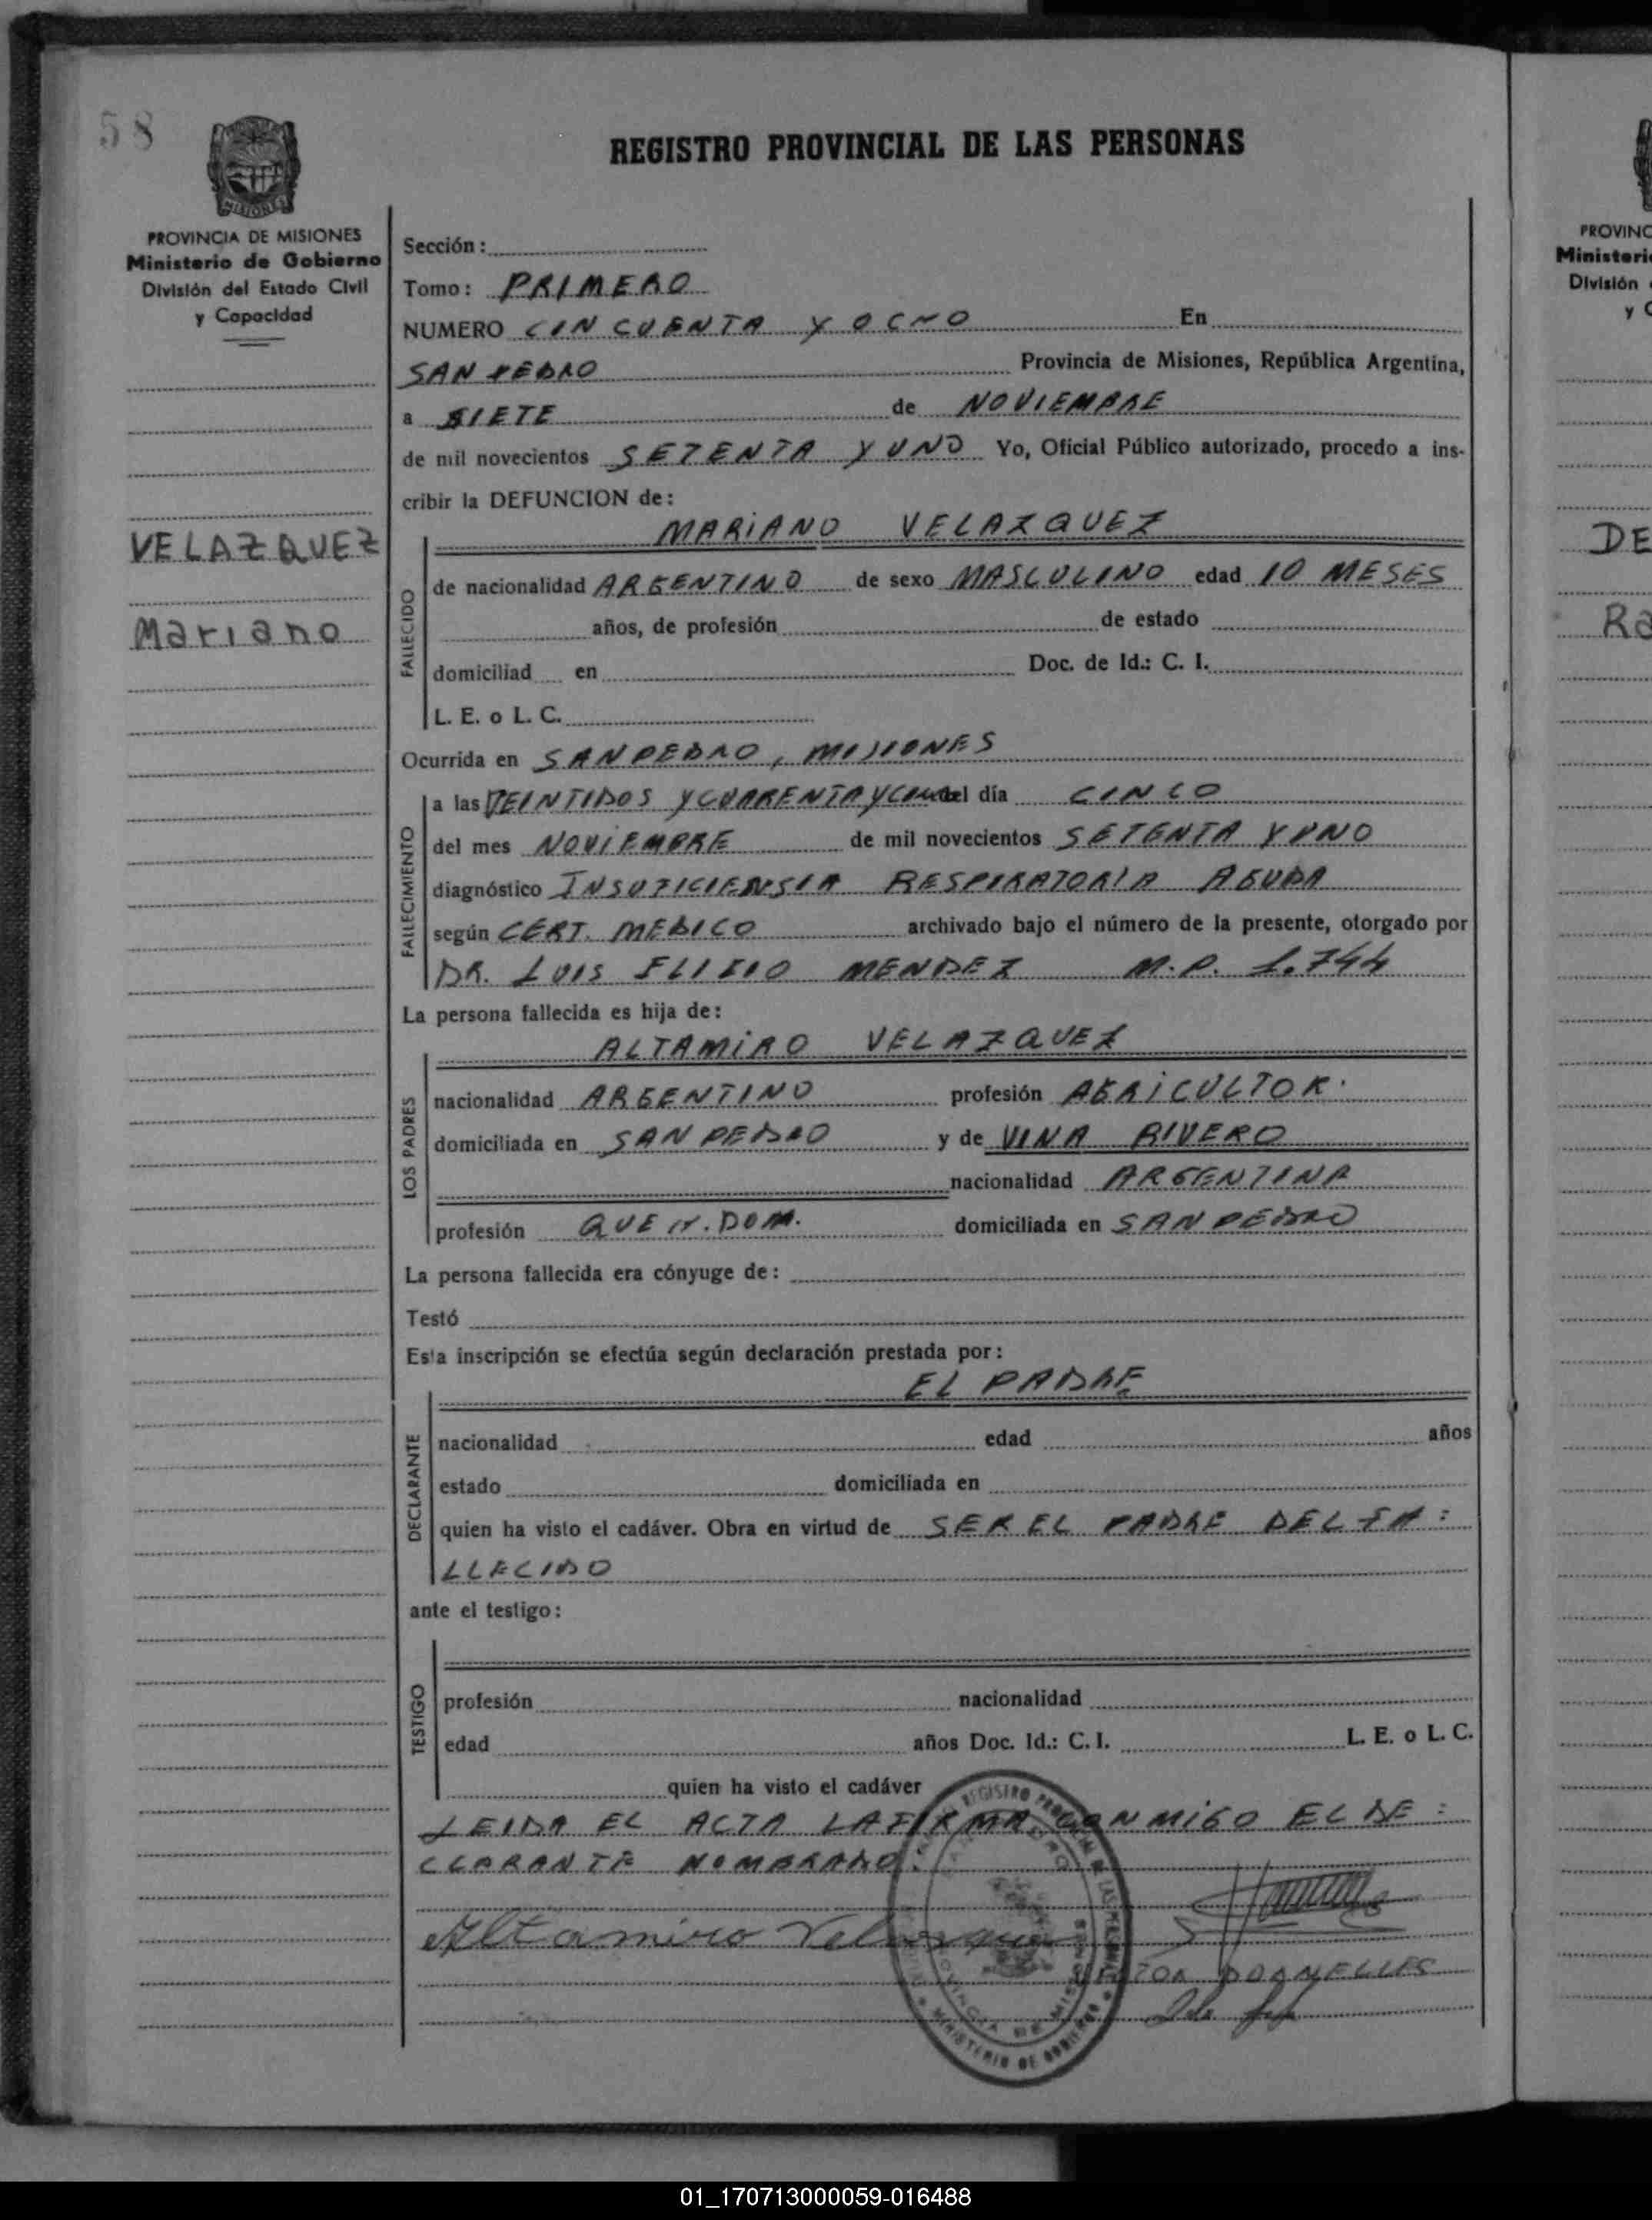 58
REGISTRO PROVINCIAL DE LAS PERSONAS
MISIONES
PROVINCIA DE MISIONES
Ministerio de Gobierno
División del Estado Civil
y Capacidad
VELAZQUEZ
Mariano
Sección:
Tomo: PRIMERO
NUMERO CINCUENTA Y OCHO En
SAN PEDRO Provincia de Misiones, República Argentina,
a SIETE de NOVIEMBRE
de mil novecientos SETENTA Y UNO Yo, Oficial Público autorizado, procedo a ins-
cribir la DEFUNCION de:
FALLECIDO
MARIANO VELAZQUEZ
de nacionalidad ARGENTINO de sexo MASCULINO edad 10 MESES
años, de profesión de estado
domiciliad en Doc. de Id.: C. I.
L. E. o L. C.
Ocurrida en SAN PEDRO, MISIONES
FALLECIMIENTO
a las VEINTIDOS Y CUARENTA Y del día CINCO
del mes NOVIEMBRE de mil novecientos SETENTA Y UNO
diagnóstico INSUFICIENSIA RESPIRATORIA AGUDA
según CERT. MEDICO archivado bajo el número de la presente, otorgado por
DR. LUIS ELIGIO MENDEZ M.P. 1.744
La persona fallecida es hija de:
LOS PADRES
ALTAMIRO VELAZQUEZ
nacionalidad ARGENTINO profesión AGRICULTOR.
domiciliada en SAN PEDRO y de VINA RIVERO
nacionalidad ARGENTINA
profesión QUEH. DOM. domiciliada en SAN PEDRO
La persona fallecida era cónyuge de:
Testó
Esta inscripción se efectúa según declaración prestada por:
DECLARANTE
EL PADRE
nacionalidad edad años
estado domiciliada en
quien ha visto el cadáver. Obra en virtud de SER EL PADRE DEL FA:
LLECIDO
ante el testigo:
TESTIGO
profesión nacionalidad
edad años Doc. Id.: C. I. L. E. o L. C.
quien ha visto el cadáver
LEIDA EL ACTA LA FIRMA CONMIGO EL DE:
CLARANTE NOMBRADO:
Altamiro Velazquez
DORNELLES
REGISTRO PROVINCIAL DE LAS PERSONAS
PROVINCIA DE MISIONES
MINISTERIO DE GOBIERNO
PROVINC
Ministeri
División
y C
DE
Ra
01_170713000059-016488